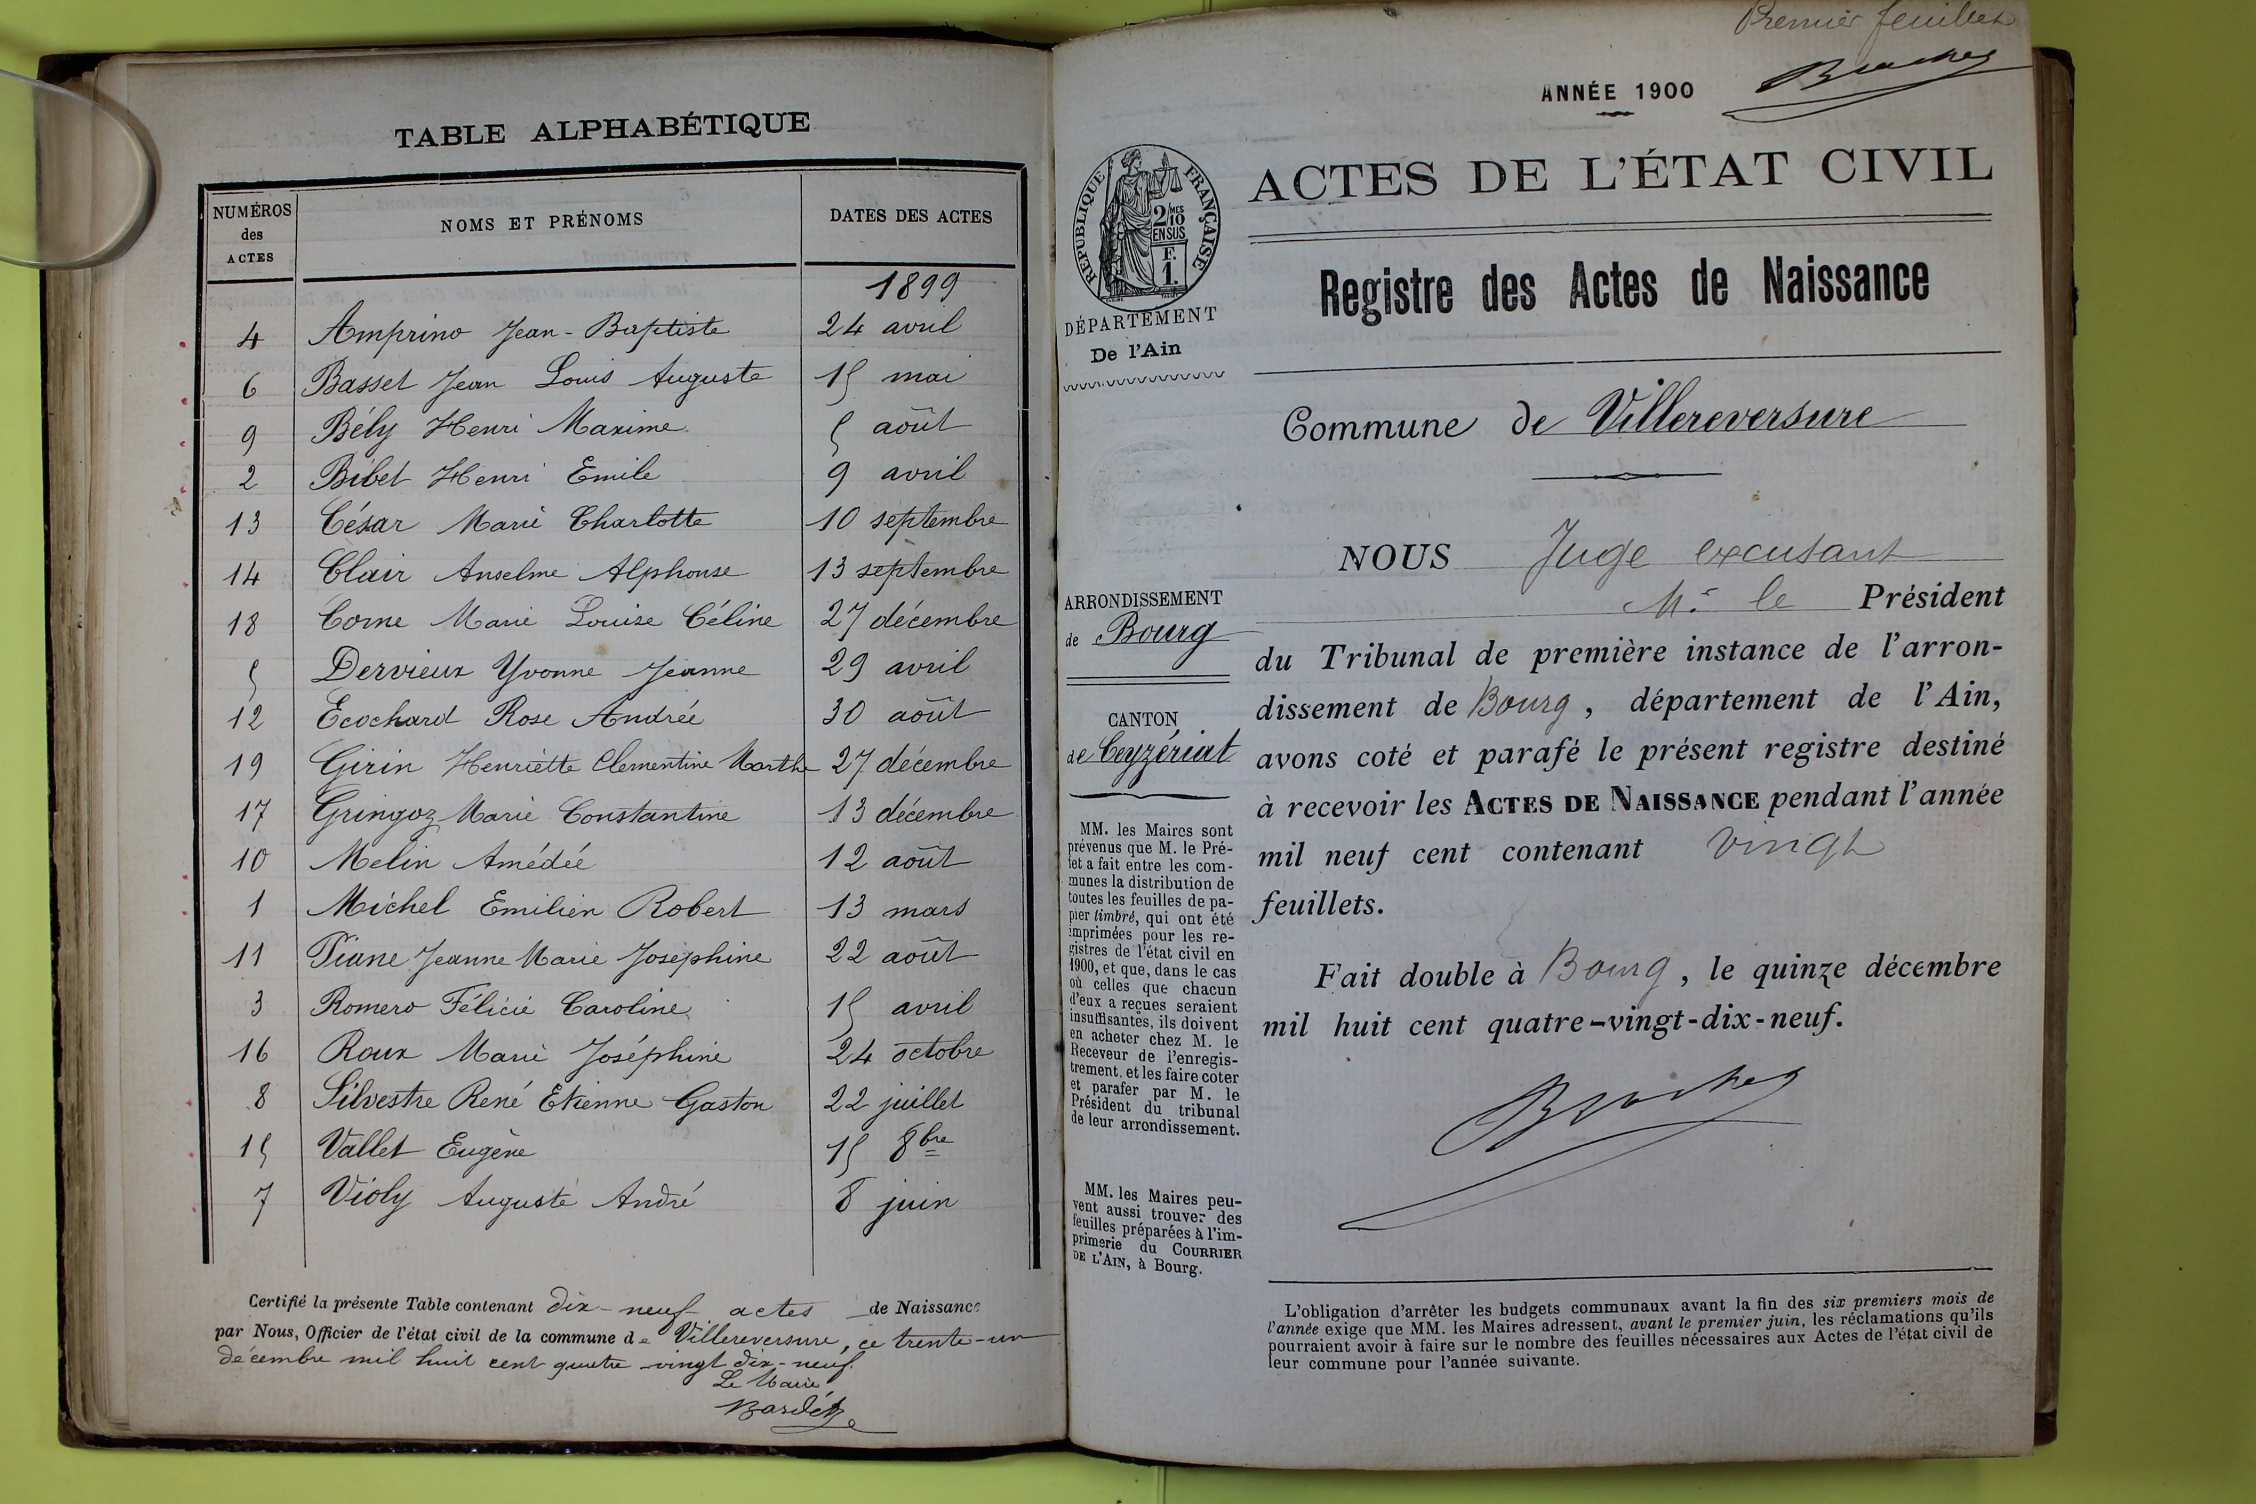 TABLE ALPHABÉTIQUE
NUMÉROS des ACTES NOMS ET PRÉNOMS DATES DES ACTES
1899
4 Amprino Jean-Baptiste 24 avril
6 Basset Jean Louis Auguste 15 mai
9 Bély Henri Maxime 5 août
2 Bibet Henri Emile 9 avril
13 César Marie Charlotte 10 septembre
14 Clair Anselme Alphonse 13 septembre
18 Corne Marie Louise Céline 27 décembre
5 Dervieux Yvonne Jeanne 29 avril
12 Ecochard Rose Andrée 30 août
19 Girin Henriette Clementine Marthe 27 décembre
17 Gringoz Marie Constantine 13 décembre
10 Melin Amédée 12 août
1 Michel Emilien Robert 13 mars
11 Piane Jeanne Marie Joséphine 22 août
3 Romero Félicie Caroline 15 avril
16 Roux Marie Joséphine 24 octobre
8 Silvestre René Etienne Gaston 22 juillet
15 Vallet Eugène 15 8bre
7 Violy Auguste André 8 juin
Certifié la présente Table contenant dix-neuf actes de Naissance
par Nous, Officier de l'état civil de la commune de Villereversure, ce trente-un
décembre mil huit cent quatre-vingt dix-neuf
Le Maire
Premier feuillet
ANNÉE 1900
ACTES DE L'ÉTAT CIVIL
RÉPUBLIQUE FRANÇAISE
2 MES
10
EN SUS
F.
1.
DÉPARTEMENT
De l'Ain
ARRONDISSEMENT
de Bourg
CANTON
de Ceyzériat
MM. les Maires sont
prévenus que M. le Pré-
fet a fait entre les com-
munes la distribution de
toutes les feuilles de pa-
pier timbré, qui ont été
imprimées pour les re-
gistres de l'état civil en
1900, et que, dans le cas
où celles que chacun
d'eux a reçues seraient
insuffisantes, ils doivent
en acheter chez M. le
Receveur de l'enregis-
trement, et les faire coter
et parafer par M. le
Président du tribunal
de leur arrondissement.
MM. les Maires peu-
vent aussi trouver des
feuilles préparées à l'im-
primerie du COURRIER
DE L'AIN, à Bourg.
Registre des Actes de Naissance
Commune de Villereversure
NOUS Juge excusant
Mr le Président
du Tribunal de première instance de l'arron-
dissement de Bourg, département de l'Ain,
avons coté et parafé le présent registre destiné
à recevoir les ACTES DE NAISSANCE pendant l'année
mil neuf cent contenant vingt
feuillets.
Fait double à Bourg, le quinze décembre
mil huit cent quatre-vingt-dix-neuf.
L'obligation d'arrêter les budgets communaux avant la fin des six premiers mois de
l'année exige que MM. les Maires adressent, avant le premier juin, les réclamations qu'ils
pourraient avoir à faire sur le nombre des feuilles nécessaires aux Actes de l'état civil de
leur commune pour l'année suivante.